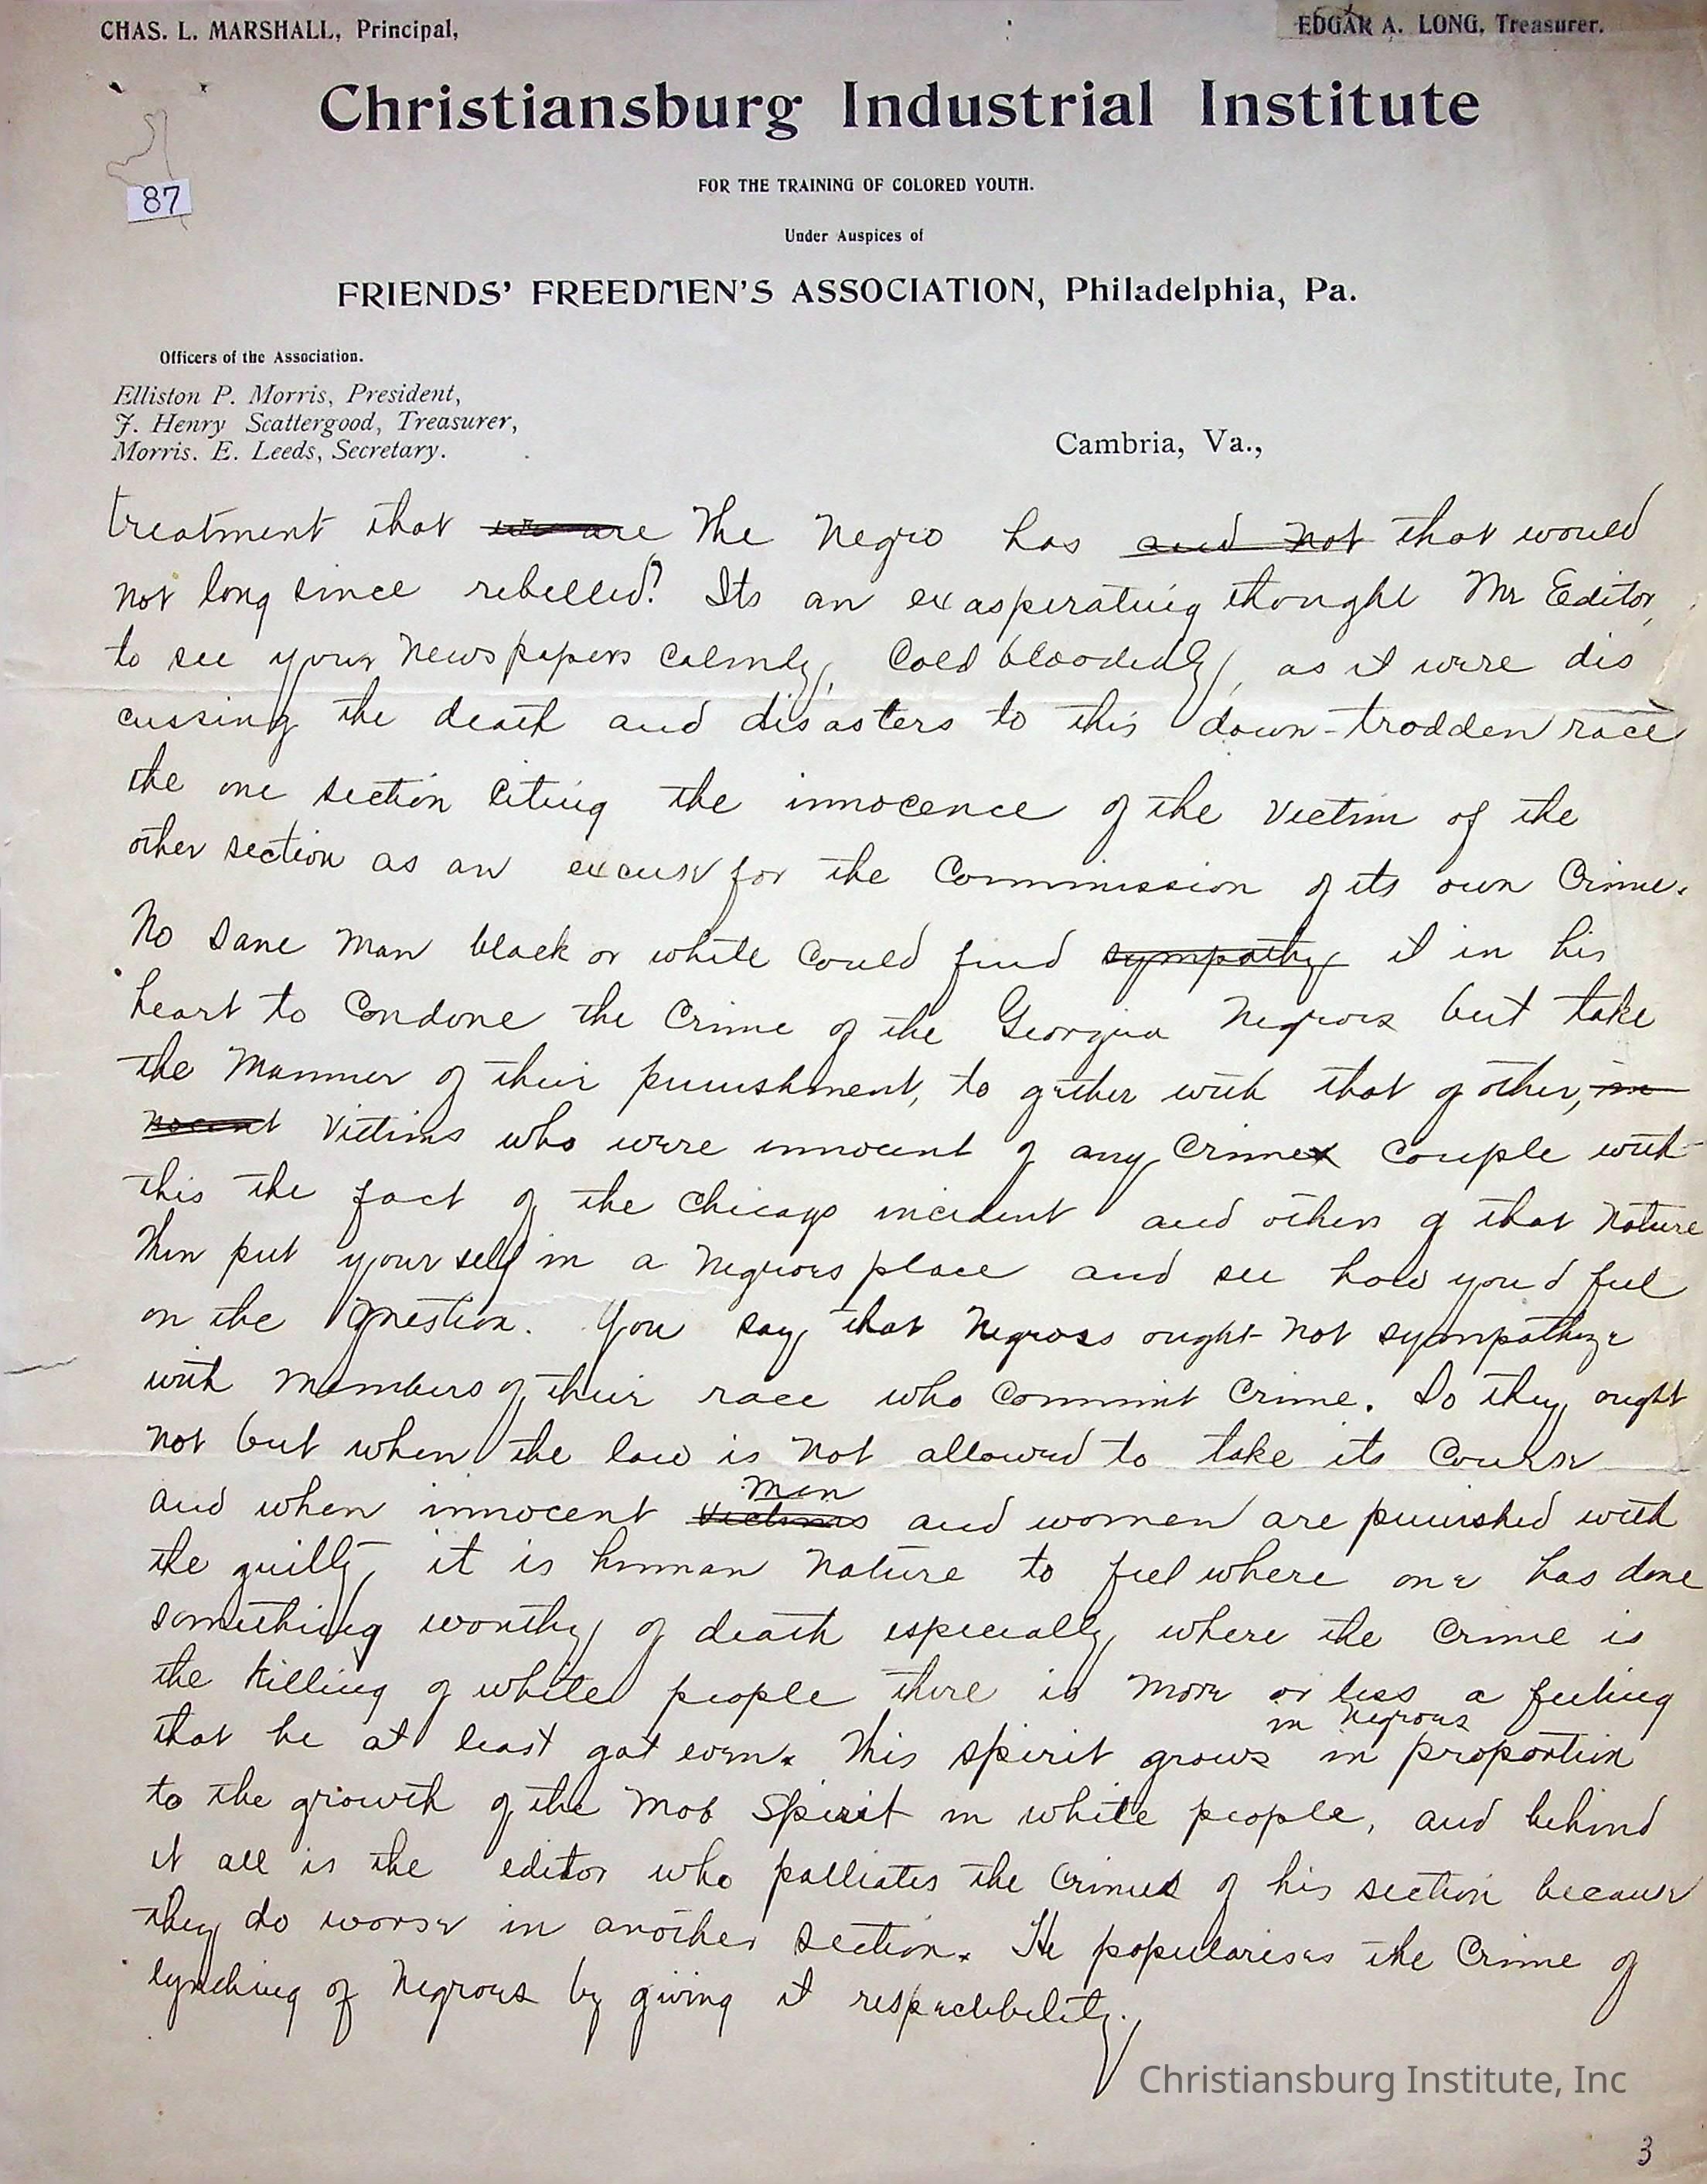 CHAS. L. MARSHALL, Principal,
EDGAR A. LONG, Treasurer.
Christiansburg Industrial Institute
87
FOR THE TRAINING OF COLORED YOUTH.
Under Auspices of
FRIENDS' FREEDMEN'S ASSOCIATION, Philadelphia, Pa.
Officers of the Association.
Elliston P. Morris, President,
J. Henry Scattergood, Treasurer,
Morris. E. Leeds, Secretary.
Cambria, Va.,
treatment that we are The Negro has and not that would
not long since rebelled? Its an exasperating thought Mr Editor,
to see your Newspapers calmly, Cold bloodedly, as it were dis
cussing the death and disasters to this down-trodden race
the one section citing the innocence of the victim of the
other section as an excuse for the Commission of its own Crime.
No Sane Man black or white could find sympathy it in his
heart to Condone the Crime of the Georgia Negroes but take
the Manner of their punishment, to gether with that of other, in
nocent victims who were innocent of any Crime Couple with
this the fact of the Chicago incident and others of that Nature
Then put your self in a Negroes place and see how you'd feel
on the Question. You say that Negroes ought not sympathize
with Members of their race who Commit Crime. So they ought
not but when the law is not allowed to take its Course
Men
and when innocent victims and women are punished with
the guilty, it is human nature to feel where one has done
something worthy of death especially where the Crime is
the killing of white people there is more or less a feeling
that he at least got even. This spirit grows in Negroes in proportion
to the growth of the Mob Spirit in white people, and behind
it all is the editor who palliates the Crimes of his section because
they do worse in another section. He popularises the Crime of
lynching of Negroes by giving it respectibility.
Christiansburg Institute, Inc
3